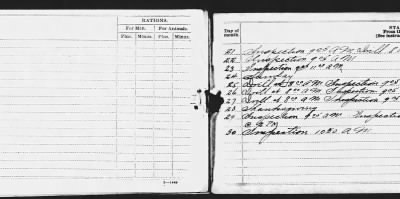 RATIONS.
For Men. For Animals.
Plus. Minus. Plus. Minus.
Day of
month.
STA
From th
(See instruc
21. Inspection 9 05 A.M. Drill 8
22. Inspection 9 05 A.M
23 Inspection 9 05 A.M
24 Sunday
25. Drill at 8 00 A.M Inspection 9 05
26 Drill at 8 00 A.M Inspection 9 05
27 Drill at 8 00 A.M Inspection 9 05
28 Thanksgiving
29 Inspection A.M. Inspectio
30 Inspection A.M